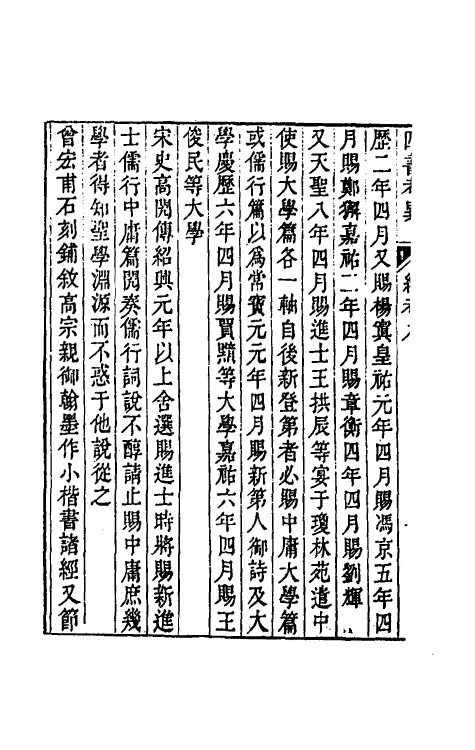 四書考異
總考八
歷二年四月又賜楊寘皇祐元年四月賜馮京五年四
月賜鄭獬嘉祐二年四月賜章衡四年四月賜劉輝
又天聖八年四月賜進士王拱辰等宴于瓊林苑遣中
使賜大學篇各一軸自後新登第者必賜中庸大學篇
或儒行篇以為常寶元元年四月賜新第人御詩及大
學慶歷六年四月賜賈黯等大學嘉祐六年四月賜王
俊民等大學
宋史高閌傳紹興元年以上舍選賜進士時將賜新進
士儒行中庸篇閌奏儒行詞說不醇請止賜中庸庶幾
學者得知聖學淵源而不惑于他說從之
曾宏甫石刻鋪敘高宗親御翰墨作小楷書諸經又節